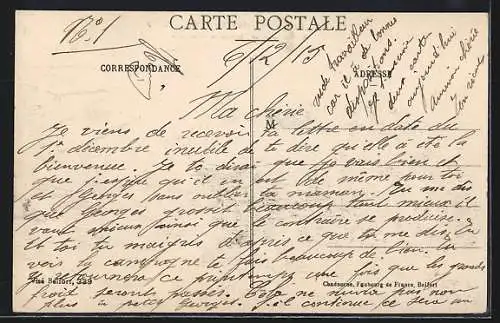 N°1
CARTE POSTALE
6/2/15
CORRESPONDANCE
ADRESSE
M
Ma chérie
Je viens de recevoir ta lettre en date du
1er décembre inutile de te dire qu'elle a été la
bienvenue. Je te dirai que je vais bien et
que j'espère qu'il en est de même pour toi
et Georges sans oublier ta maman. Tu me dis
que Georges grossit beaucoup tant mieux il
vaut mieux ainsi que le contraire se produise.
et toi tu maigris d'après ce que tu me dis, tu
vois la campagne te fais beaucoup de bien. Tu
y retourneras ce printemps une fois que les grands
froid seront passés. Cela ne nuira pas non
plus à petit Georges. S'il continue ce sera un
rude travailleur
car il a de bonnes
dispositions.
aujourd'hui
Visé Belfort, 239
Chadourne, Faubourg de France, Belfort